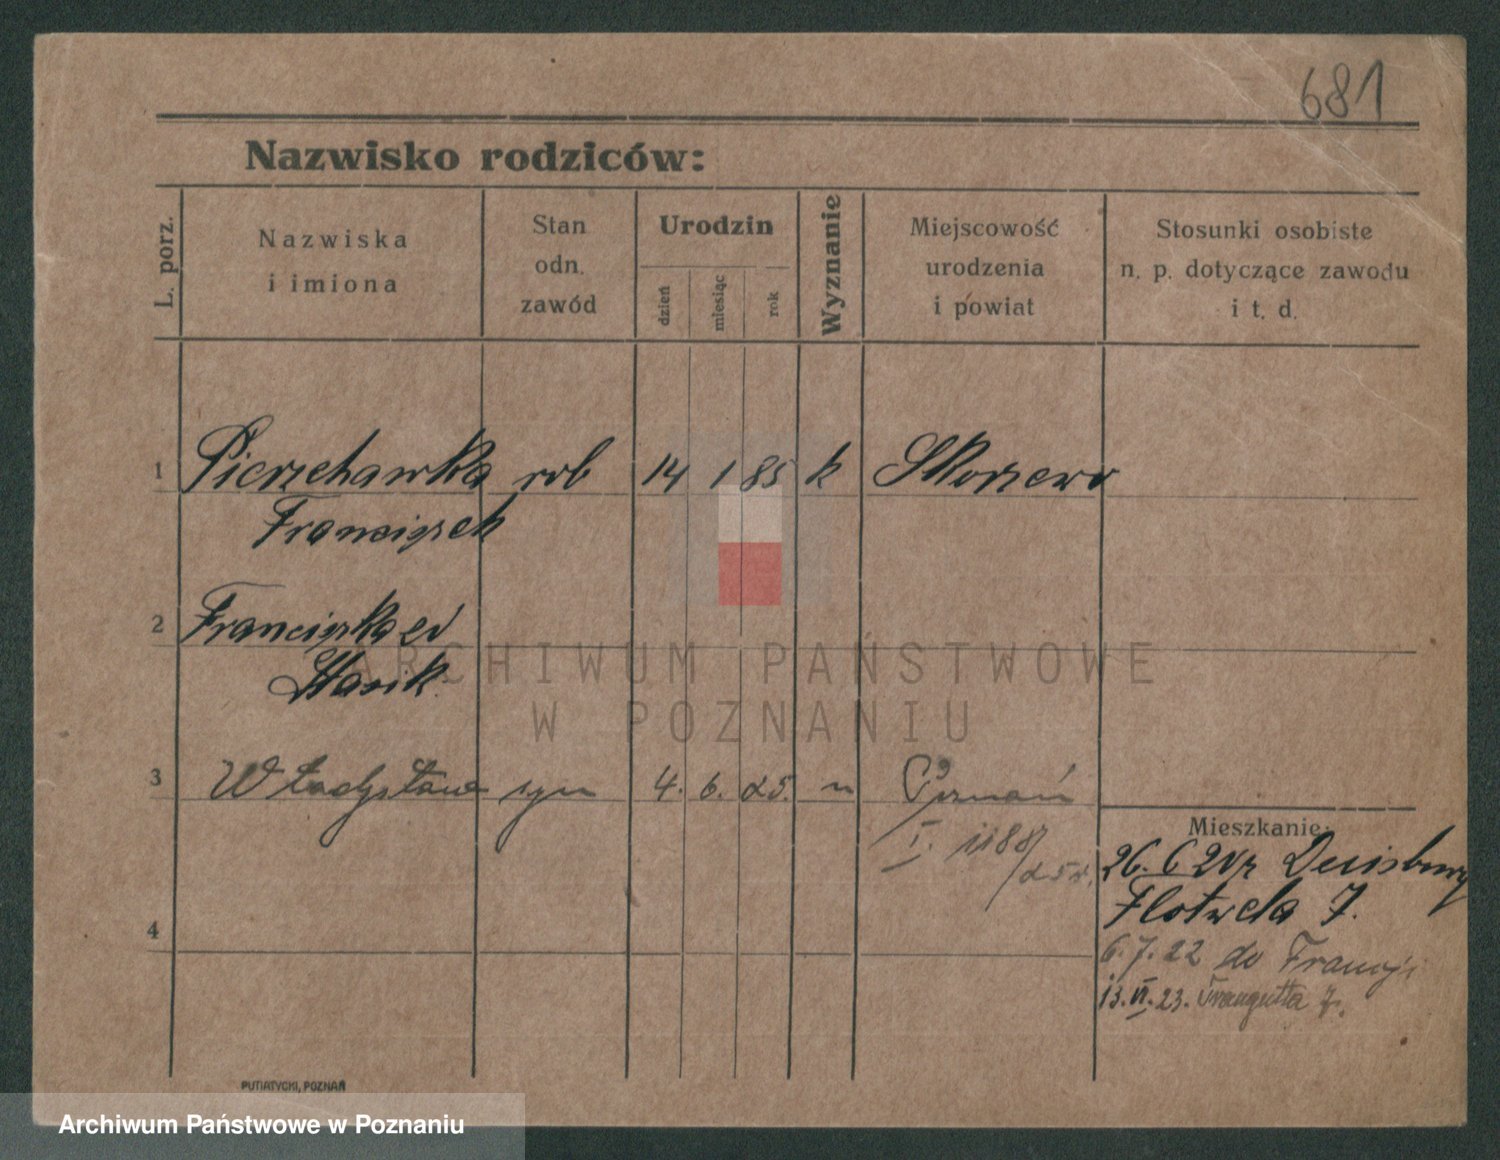 681
Nazwisko rodziców:
L. porz.
Nazwiska
i imiona
Stan
odn.
zawód
Urodzin
dzień
miesiąc
rok
Wyznanie
Miejscowość
urodzenia
i powiat
Stosunki osobiste
n. p. dotyczące zawodu
i t. d.
1 Pierzchawka rob 14 1 85 k Skorzewo
Franciszek
2 Franciszka
3 Władysław syn 4. 6. 25. Poznań
I.
Mieszkanie:
26. 6 20 z Duisburg
7.
4
6. 7. 22 do Francji
13. VI. 23. Traugutta 7.
PUTIATYCKI, POZNAŃ
ARCHIWUM PAŃSTWOWE
W POZNANIU
Archiwum Państwowe w Poznaniu